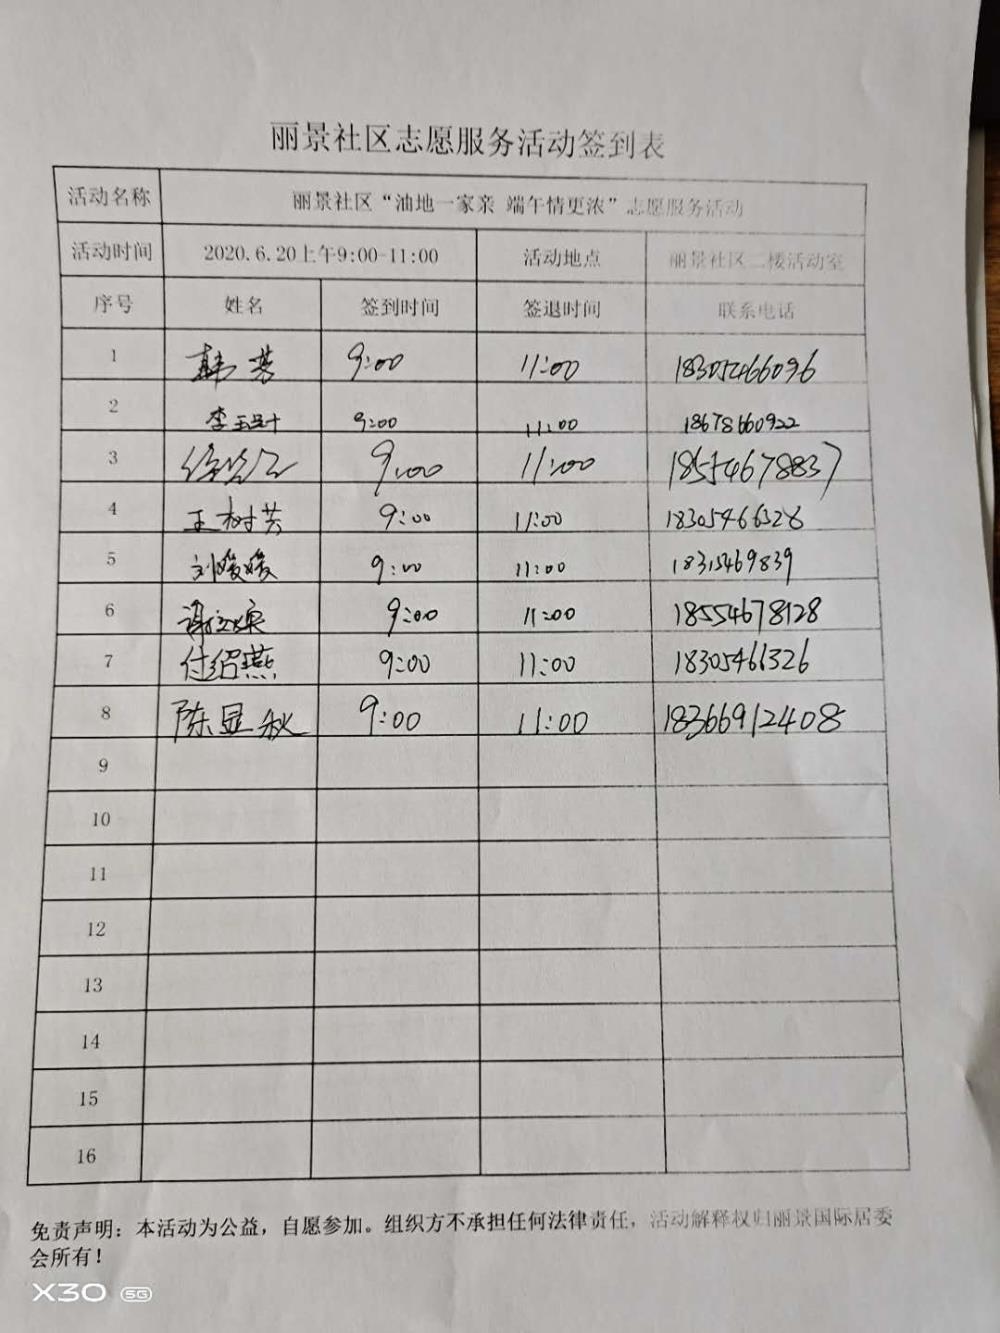 丽景社区志愿服务活动签到表
活动名称 丽景社区“油地一家亲 端午情更浓”志愿服务活动
活动时间 2020.6.20上午9:00-11:00 活动地点 丽景社区二楼活动室
序号 姓名 签到时间 签退时间 联系电话
1 韩芳 9:00 11:00 18305466096
2 9:00 11:00 18678660922
3 9:00 11:00 18554678837
4 王树芸 9:00 11:00 18305466328
5 刘媛媛 9:00 11:00 18315469839
6 9:00 11:00 18554678128
7 付绍燕 9:00 11:00 18305461326
8 陈显秋 9:00 11:00 18366912408
9
10
11
12
13
14
15
16
免责声明：本活动为公益，自愿参加。组织方不承担任何法律责任，活动解释权归丽景国际居委
会所有！
X30 5G